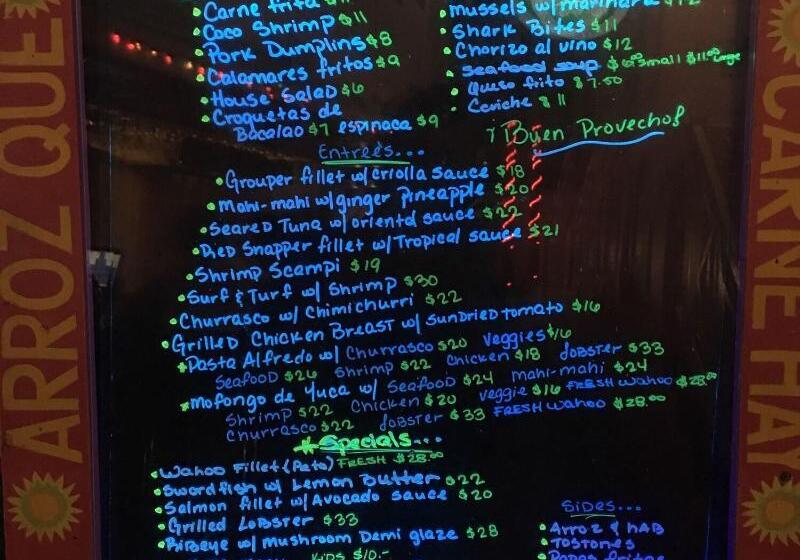 Carne frita
Coco Shrimp $11
Pork Dumplins $8
Calamares fritos $9
House Salad $6
Croquetas de
Bacalao $7 espinaca $9
mussels w/marinara
Shark Bites $11
Chorizo al vino $12
Seafood soup small $11.00 Large
Queso frito $7.50
Ceviche $11
¡Buen Provecho!
Entree's...
Grouper fillet w/criolla sauce $18
Mahi-mahi w/ginger Pineapple $20
Seared Tuna w/oriental sauce $22
Died Snapper fillet w/Tropical sauce $21
Shrimp Scampi $19
Surf & Turf w/ Shrimp $30
Churrasco w/ Chimichurri $22
Grilled Chicken Breast w/ sundried tomato $16
Pasta Alfredo w/ Churrasco $20 Veggies $16
Seafood $26 Shrimp $22 Chicken $18 Lobster $33
Mofongo de Yuca w/ Seafood $24 mahi-mahi $24
Shrimp $22 Chicken $20 veggie $16 FRESH wahoo $28.00
Churrasco $22 Lobster $33 FRESH Wahoo $28.00
Specials...
Wahoo Fillet (Peto) FRESH $28.00
Swordfish w/ Lemon Butter $22
Salmon fillet w/ Avocado sauce $20
Grilled Lobster $33
Ribeye w/ mushroom Demi glaze $28
Kids $10.-
Sides...
Arroz & HAB
Tostones
Papas fritas
ARROZ QUE
CARNE HAY